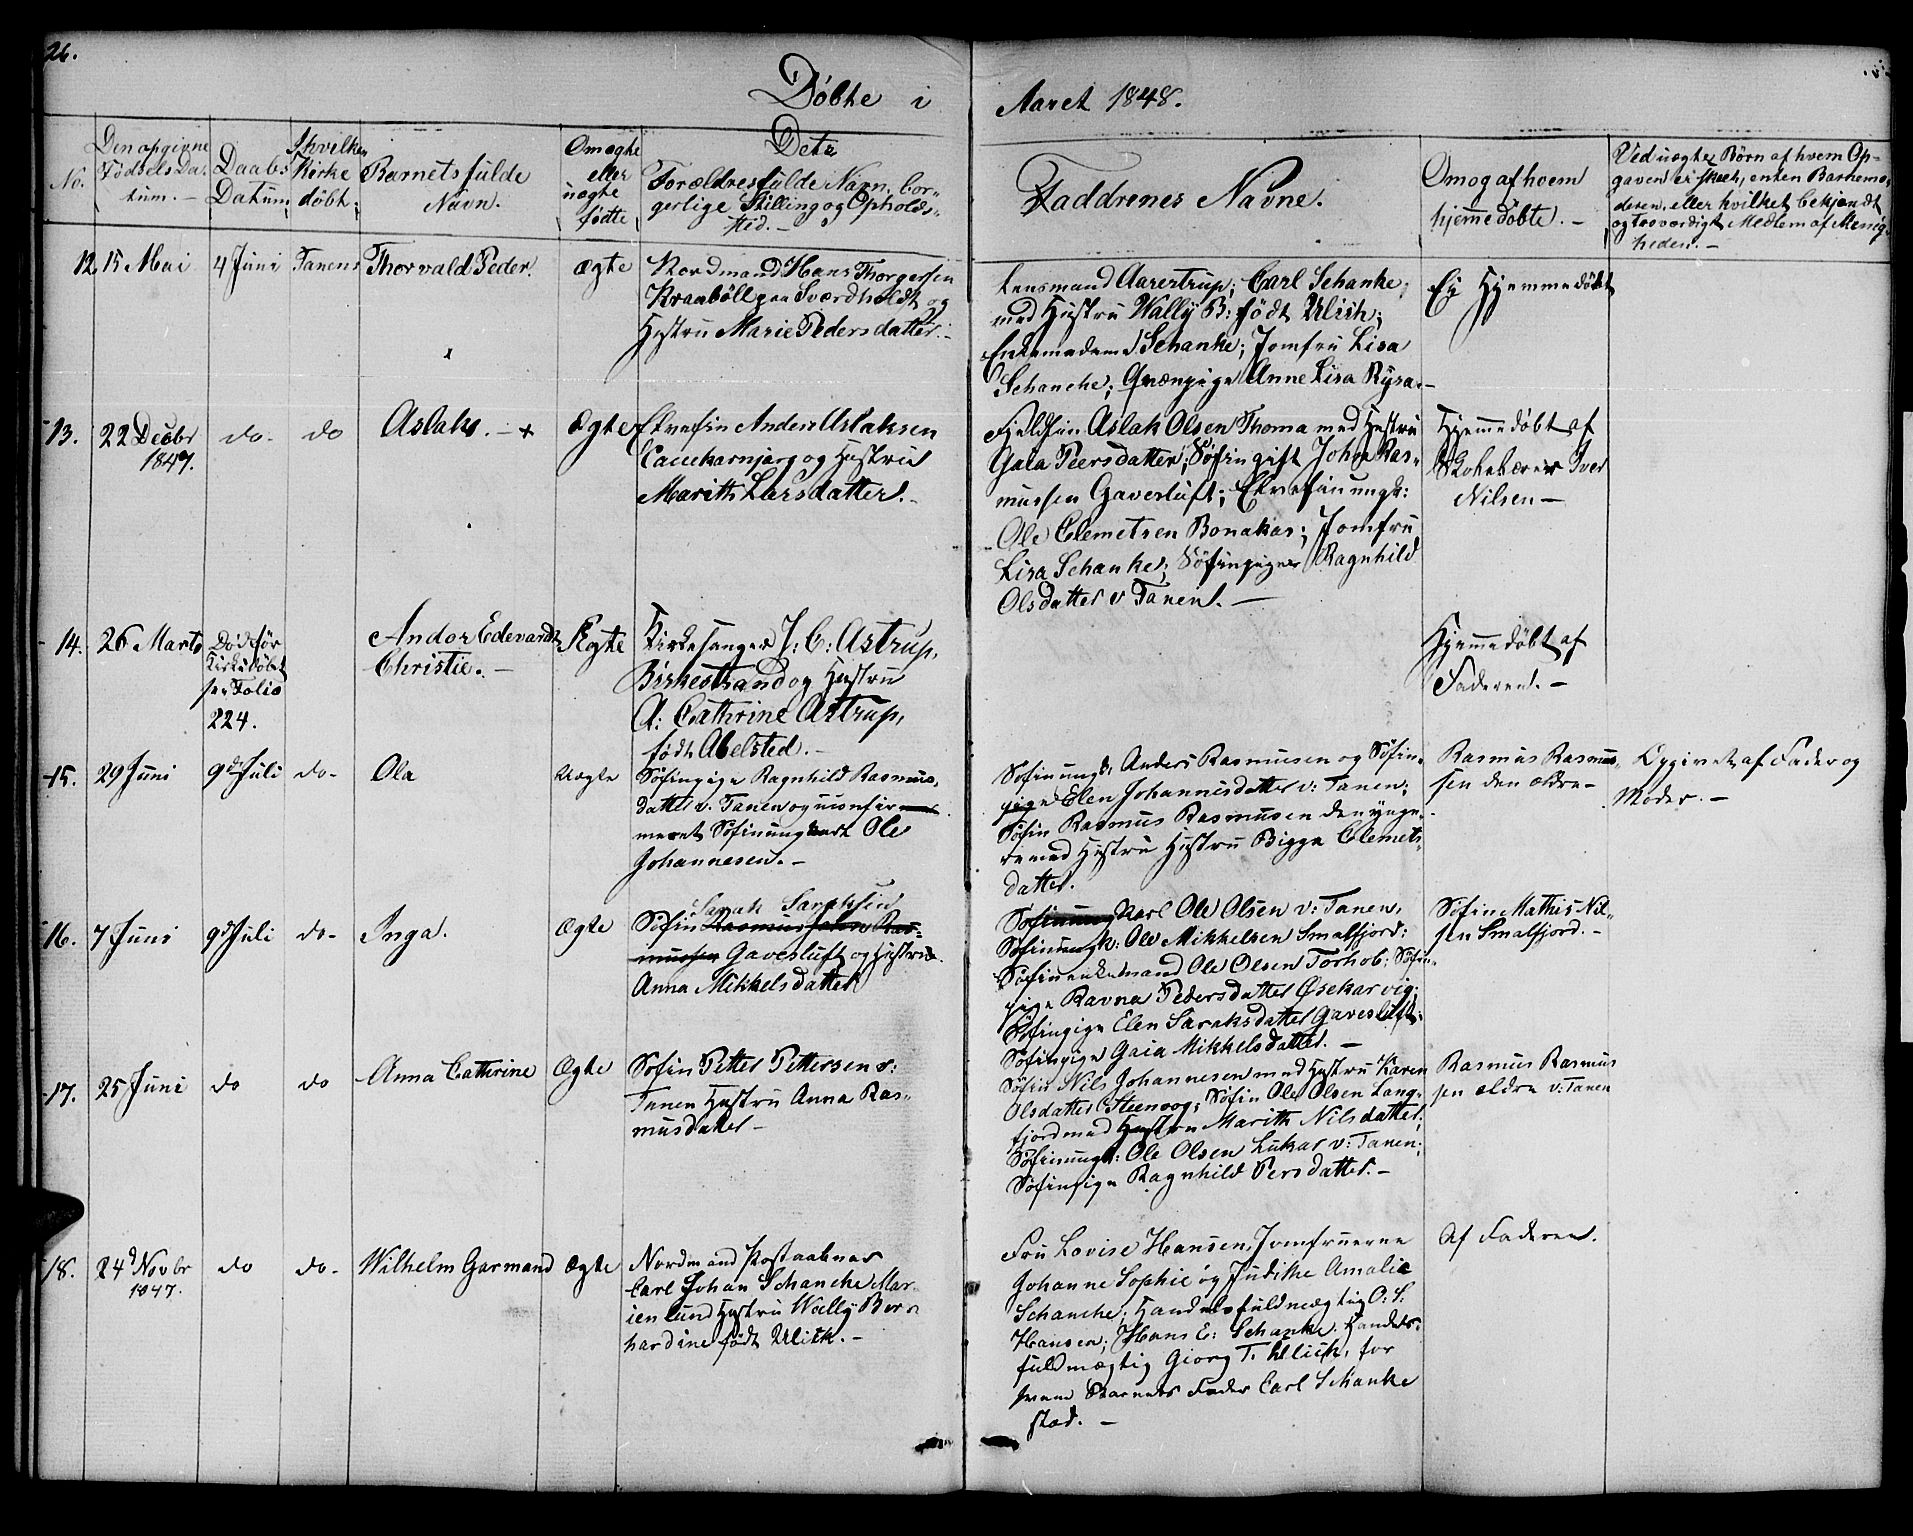 26.
Döbte i
Aaret 1848.
No.
Den opgivne
Födsels Da-
tum. -
Daabs
Datum
I hvilken
Kirke
döbt.
Barnets fulde
Navn.
Om ægte
eller
uægte
födte
Dets
Forældres fulde Navn, bor-
gerlige Stilling og Opholds-
sted. -
Faddrenes Navne.
Om og af hvem
hjemmedöbte. -
Ved uægte Börn af hvem Op-
gaven er skeet, enten Barnemo-
deren, eller hvilket bekjendt
og troværdigt Medlem af Menig-
heden. -
12.
15 Mai
4 Juni
Tanens
Thorvald Peder.
ægte
Nordmand Hans Thorgersen
Kraaböll paa Sværdholdt og
Hustru Marie Pedersdatter. -
Lensmand Aarertrup; Carl Schanke
med Hustru Wally B: födt Ulich;
Enkemadame Schanke; Jomfru Lisa
Schanche; Qvænpige Anne Lisa Rysa. -
Ey Hjemmedöbt
13.
22 Decbr
1847.
do-
do
Aslak. - +
Ægte
Elvefin Anders Aslaksen
og Hustru
Marith Larsdatter. -
Fjeldfin Aslak Olsen Thoma med Hustru
Gaia Peersdatter; Söfin gift John Ras-
mussen Gavesluft; Elvefin ungk:
Ole Clemetsen Bonakas; Jomfru
Lisa Schanke; Söfinpige Ragnhild
Olsdatter v Tanen. -
Hjemmedöbt af
Skolelærer Iver
Nilsen -
14.
26 Marts
Död för
Kirkedöbt
see Folio
224.
Andor Edevardt
Christie. -
Ægte
Kirkesanger J: C: Astrup,
Birkestrand og Hustru
A: Cathrine Astrup,
födt Abelsted. -
Hjemmedöbt af
Faderen. -
15.
29 Juni
9d Juli
do-
Ola
Uægte
Söfinpige Ragnhild Rasmus-
datter v. Tanen og
Söfin ungkarl Ole
Johannesen. -
Söfin ungk. Anders Rasmusen og Söfin-
pige Elen Johannisdatter v: Tanen;
Söfin Rasmus Rasmusen den yng-
re med Hustru Hustru Bigga Clemets-
datter.
Rasmus Rasmus-
sen den ældre -
Opgivet af Fader og
Moder. -
16.
7 Juni
9d Juli
do-
Inga.
Ægte
Sarak Saraksen
Söfin Rasmus John Ras-
mussen Gavesluft og Hustru
Anna Mikkelsdatter
Söfin ung Karl Ole Olsen v: Tanen,
Söfin ungk: Ole Mikkelsen Smalfjord:
Söfin enkemand Ole Olsen Torhob: Söfin-
pige Ravna Pedersdatter Øsekarvig;
Söfinpige Elen Saraksdatter Gavesluft;
Söfinpige Gaia Mikkelsdatter. -
Söfin Mathis Nil-
sen Smalfjord. -
17.
25 Juni
do
do
Anna Cathrine
Ægte
Söfin Petter Pettersen v:
Tanen Hustru Anna Ras-
musdatter -
Söfin Nils Johannesen med Hustru Karen
Olsdatter Steenvog; Söfin Ole Olsen Lang-
fjord med Hustru Marith Nilsdatter;
Söfin ungk: Ole Olsen Lukas v: Tanen;
Söfinpige Ragnhild Persdatter. -
Rasmus Rasmus
sen ældre v: Tanen
18.
24d Novbr
1847.
do
do-
Wilhelm Garmand
Ægte
Nordmand Postaabner
Carl Johan Schanche Mar-
ienlund Hustru Wally Bern
hardine födt Ulich. -
Fru Lovise Hansen, Jomfruerne
Johanne Sophie og Judithe Amalie
Schanche; Handelsfuldmægtig O: S:
Hansen; Hans E: Schanke Handels-
fuldmægtig Giorg T. Ulich, for
hvem Barnets Fader Carl Schanke
stod. -
Af Faderen.